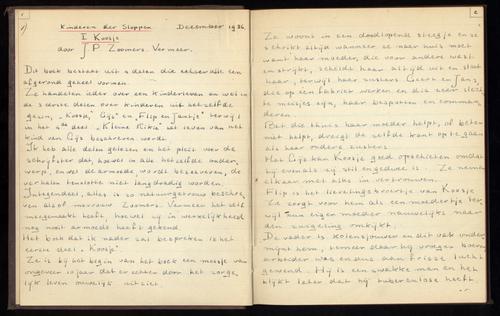 1
1) Kinderen der Sloppen December 1936.
I Koosje
door J P. Zoomers. Vermeer.
Dit boek bestaat uit 4 delen die echter alle een
afgerond geheel vormen.
Ze handelen ieder over een kinderleven en wel in
de 3 eerste delen over kinderen uit hetzelfde
gezin, "Koosje, Gijs" en "Flip en Jantje" terwijl
in het 4de deel "Kleine Rikie" het leven van het
kind van Gijs beschreven wordt.
Ik heb alle delen gelezen en het pleit voor de
schrijfster dat, hoewel in alle hetzelfde onder,
werp, en wel de armoede, wordt beschreven, de
verhalen tenslotte niet langdradig worden.
Integendeel, alles is zo natuurgetrouw beschre,
ven alsof mevrouw Zoomers. Vermeer het zelf
meegemaakt heeft, hoewel zij in werkelijkheid
nog nooit armoede heeft gekend.
Het boek dat ik nader zal bespreken is het
eerste deel: Koosje.
Ze is bij het begin van het boek een meisje van
ongeveer 10 jaar dat er echter door het zorge,
lijk leven ouwelijk uitziet.
2
Ze woont in een doodlopende steegje en ze
schrikt altijd wanneer ze naar huis moet
want haar moeder, die voor andere wast
en strijkt, scheldt haar altijd uit en slaat
haar, terwijl haar zusters Geert en Jans
die op een fabriek werken en dus zeer slech,
te meisjes zijn, haar bespotten en comman,
deren.
Bet die thans haar moeder helpt, of beter
niet helpt, dreigt dezelfde kant op te gaan
als haar ondere zusters.
Met Gijs kan Koosje goed opschieten omdat
hij evenals zij stil en goedig is. Ze nemen
elkaar met alles in vertrouwen.
Flip is het lievelingsbroertje van Koosje
Ze zorgt voor hem als een moedertje ter,
wijl hun eigen moeder nauwelijks naar
den zuigeling omkijkt.
De vader is kolensjouwer en dit vak onder,
mijnt hem, temeer daar hij vroeger boeren
arbeider was en dus aan frisse lucht
gewend. Hij is een zwakke man en het
blijkt later dat hij tuberculose heeft.